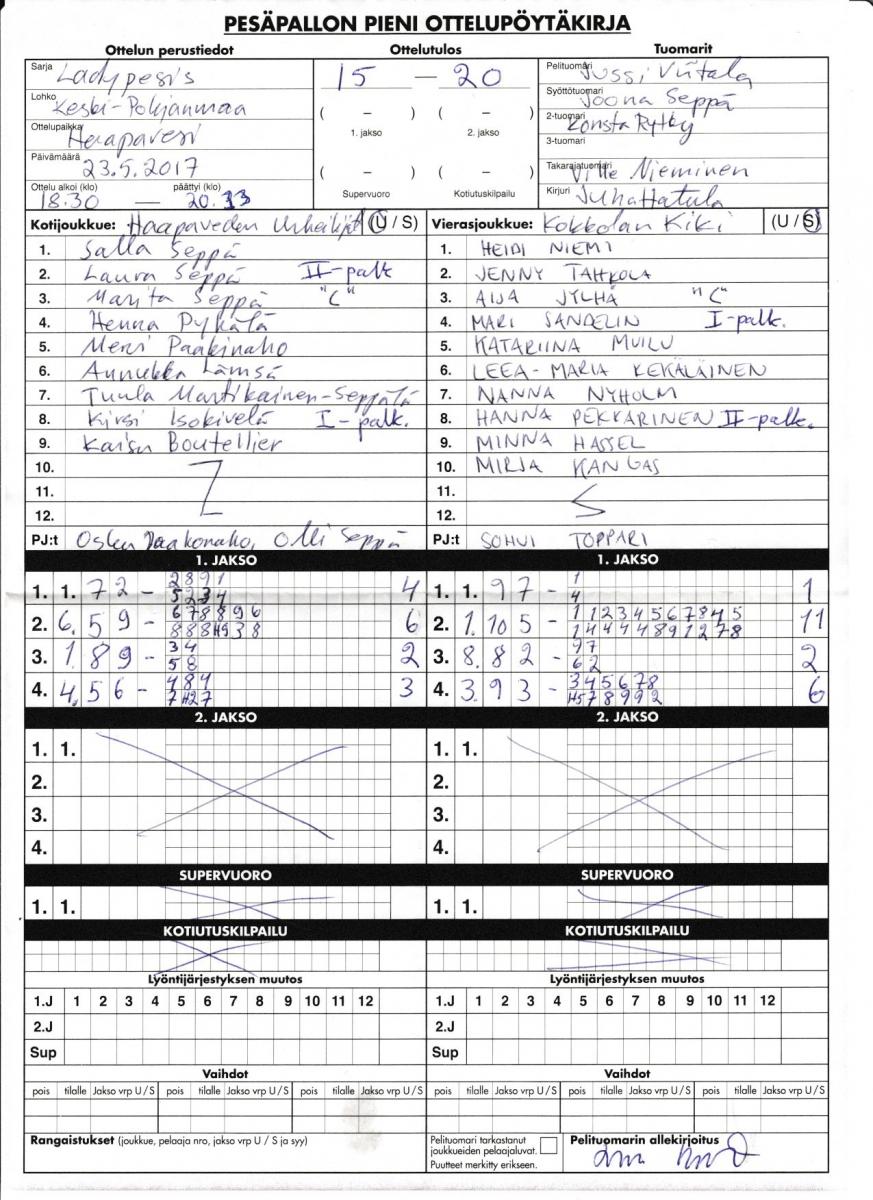 PESÄPALLON PIENI OTTELUPÖYTÄKIRJA
Ottelun perustiedot
Sarja Ladypesis
Lohko Keski-Pohjanmaa
Ottelupaikka Haapavesi
Päivämäärä 23.5.2017
Ottelu alkoi (klo) päättyi (klo)
18.30 — 20.33
Ottelutulos
15 — 20
( – ) ( – )
1. jakso 2. jakso
( – ) ( – )
Supervuoro Kotiutuskilpailu
Tuomarit
Pelituomari Jussi Viitala
Syöttötuomari Joona Seppä
2-tuomari Konsta Rytky
3-tuomari
Takarajatuomari Ville Nieminen
Kirjuri Juha Hatula
Kotijoukkue: Haapaveden Urheilijat (U / S)
1. Salla Seppä
2. Laura Seppä II-palk
3. Marita Seppä "C"
4. Henna Pykälä
5. Mervi Paakinaho
6. Annukka Lämsä
7. Tuula Martikainen-Seppälä
8. Kirsi Isokivelä I-palk.
9. Kaisu Boutellier
10.
11.
12.
PJ:t Olli Seppä
Vierasjoukkue: Kokkolan Kiri (U / S)
1. HEIDI NIEMI
2. JENNY TAHKOLA
3. AIJA JYLHÄ "C"
4. MARI SANDELIN I-palk.
5. KATARIINA MUILU
6. LEEA-MARIA KEKÄLÄINEN
7. NANNA NYHOLM
8. HANNA PEKKARINEN II-palk.
9. MINNA HASSEL
10. MIRJA KANGAS
11.
12.
PJ:t SOHVI TOPPARI
1. JAKSO
1. 1. 7 2 – 2 8 9 1 4
5 2 3 4
2. 6. 5 9 – 6 7 8 8 9 6 6
8 8 8 H9 3 8
3. 1. 8 9 – 3 4 2
5 8
4. 4. 5 6 – 4 8 4 3
7 H2 7
1. JAKSO
1. 1. 9 7 – 1 1
4
2. 1. 10 5 – 1 1 2 3 4 5 6 7 8 4 5 11
1 4 4 4 4 8 9 1 2 7 8
3. 8. 8 2 – 9 7 2
6 2
4. 3. 9 3 – 3 4 5 6 7 8 6
H5 7 8 9 9 2
2. JAKSO
1. 1.
2.
3.
4.
2. JAKSO
1. 1.
2.
3.
4.
SUPERVUORO
1. 1.
SUPERVUORO
1. 1.
KOTIUTUSKILPAILU
KOTIUTUSKILPAILU
Lyöntijärjestyksen muutos
1.J 1 2 3 4 5 6 7 8 9 10 11 12
2.J
Sup
Lyöntijärjestyksen muutos
1.J 1 2 3 4 5 6 7 8 9 10 11 12
2.J
Sup
Vaihdot
pois tilalle Jakso vrp U / S pois tilalle Jakso vrp U / S pois tilalle Jakso vrp U / S
Vaihdot
pois tilalle Jakso vrp U / S pois tilalle Jakso vrp U / S pois tilalle Jakso vrp U / S
Rangaistukset (joukkue, pelaaja nro, jakso vrp U / S ja syy)
Pelituomari tarkastanut
joukkueiden pelaajaluvat.
Puutteet merkitty erikseen.
Pelituomarin allekirjoitus